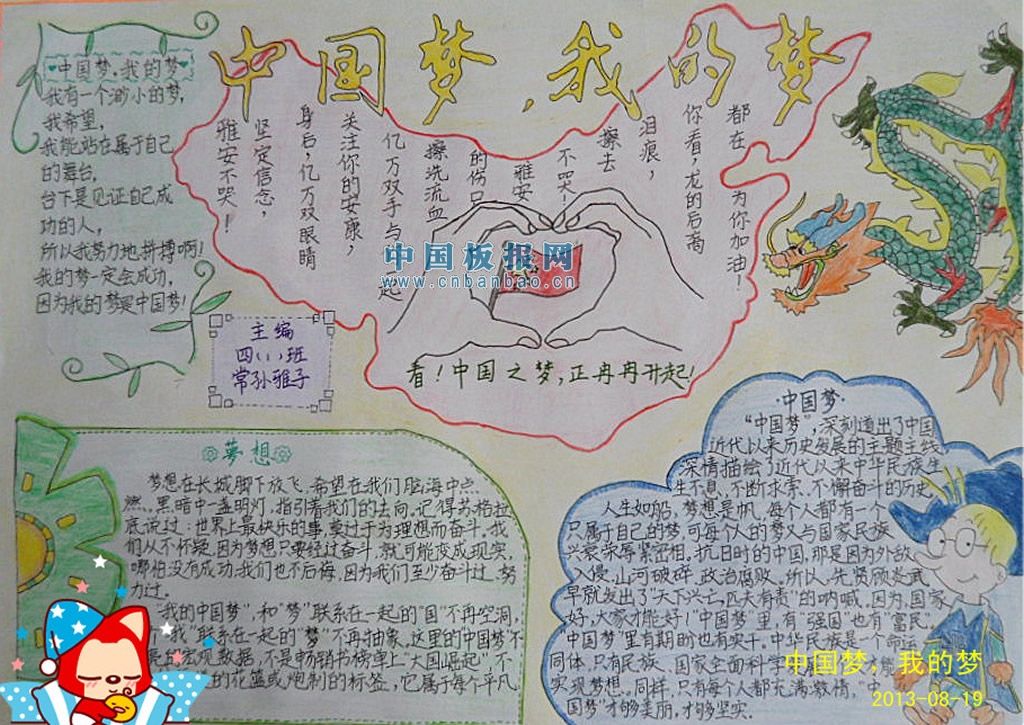 中国梦，我的梦
中国梫，我的梦
我有一个渺小的梦，
我希望，
我能站在属于自己
的舞台，
台下是见证自己成
功的人，
所以我努力地拼搏啊！
我的梦一定会成功，
因为我的梦是中国梦！
都在 为你加油！
你看，龙的后裔
泪痕，
擦去
不哭！
雅安
的伤口
擦洗流血
亿万双手与 起
关注你的安康，
身后，亿万双眼睛
坚定信念，
雅安不哭！
中国板报网
www.cnbanbao.cn
看！中国之梦，正冉冉升起！
主编
四（1）班
常孙雅子
夢想
梦想在长城脚下放飞，希望在我们脑海中点
燃。黑暗中一盏明灯，指引着我们的去向。记得苏格拉
底说过：世界上最快乐的事，莫过于为理想而奋斗。我
们从不怀疑，因为梦想只要经过奋斗，就可能变成现实，
哪怕没有成功，我们也不后悔，因为我们至少奋斗过、努
力过。
"我的中国梦"，和"梦"联系在一起的"国"不再空洞，
我"联系在一起的"梦"不再抽象。这里的中国梦"不
宏观数据，不是畅销书榜单上"大国崛起"，不
的花篮或炮制的标签，它属于每个平凡
中国梦
"中国梦"，深刻道出了中国
近代以来历史发展的主题主线，
深情描绘了近代以来中华民族生
生不息、不断求索、不懈奋斗的历史。
人生如船，梦想是帆，每个人都有一个
只属于自己的梦，可每个人的梦又与国家民族
兴衰荣辱紧密相。抗日时的中国，那是因为外敌
入侵，山河破碎，政治腐败。所以，先贤顾炎武
早就发出了"天下兴亡，匹夫有责"的呐喊。因为，国家
好，大家才能好！"中国梦"里，有"强国"也有"富民"。
中国梦"里有期盼也有实干。中华民族是一个命运
同体，只有民族、国家全面科学
实现梦想。同样，只有每个人都充满激情，"中
国梦"才够美丽，才够坚实。
中国梦，我的梦
2013-08-19